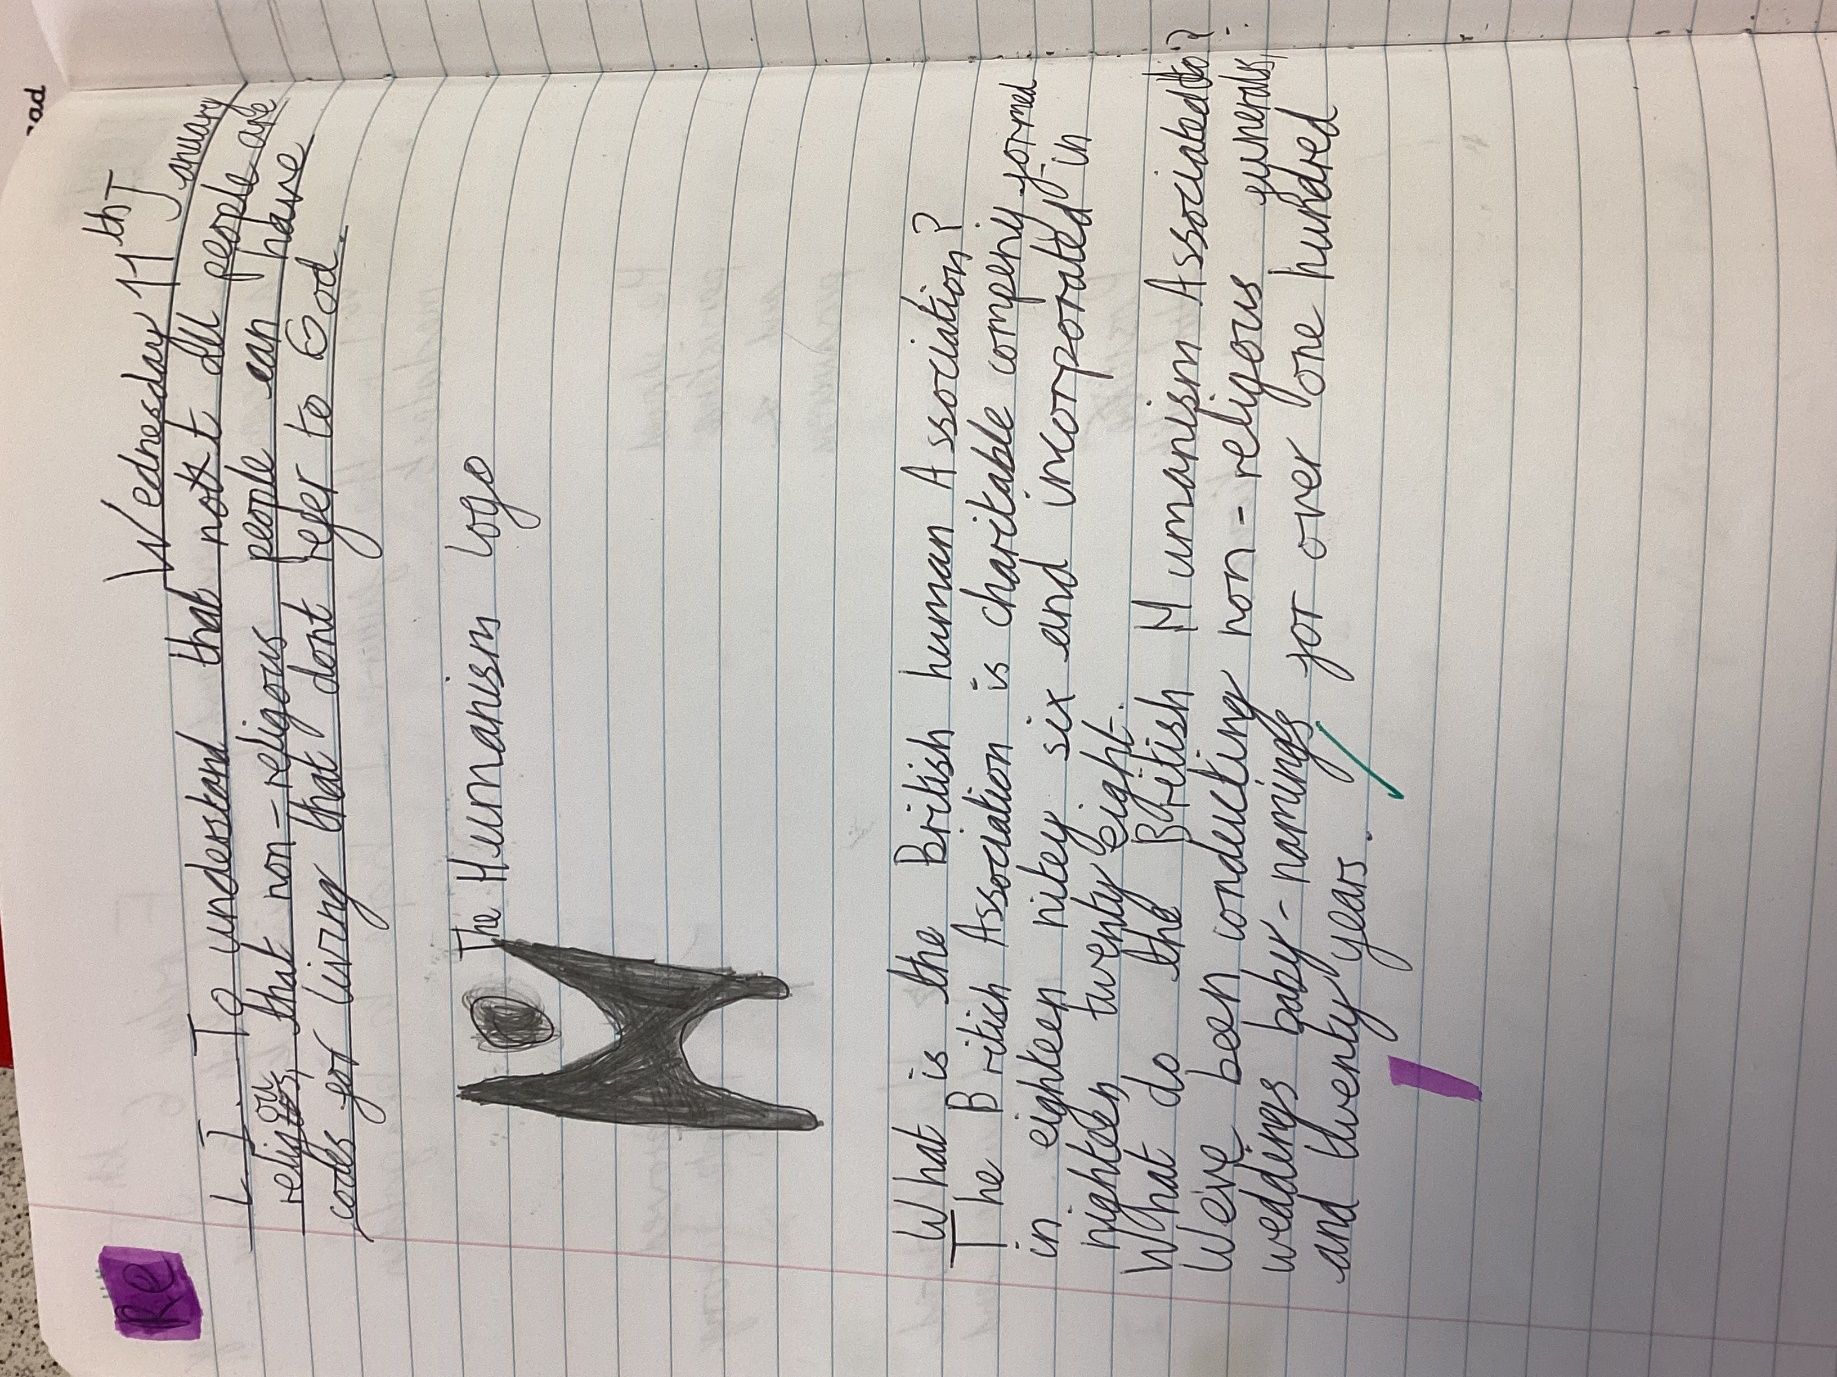 Re
Wednesday 11th January
L.I. To understand that not all people are
religious, that non-religous people can have
codes for living that dont refer to God.
The Humanism logo
What is the British human Association?
The British Association is charitable compeny formed
in eighteen nitey six and incorporated in
nighteen twenty eight.
What do the British Humanism Associated do?
Weve been conducting non-religous funerals,
weddings baby-namings for over one hundred
and twenty years.